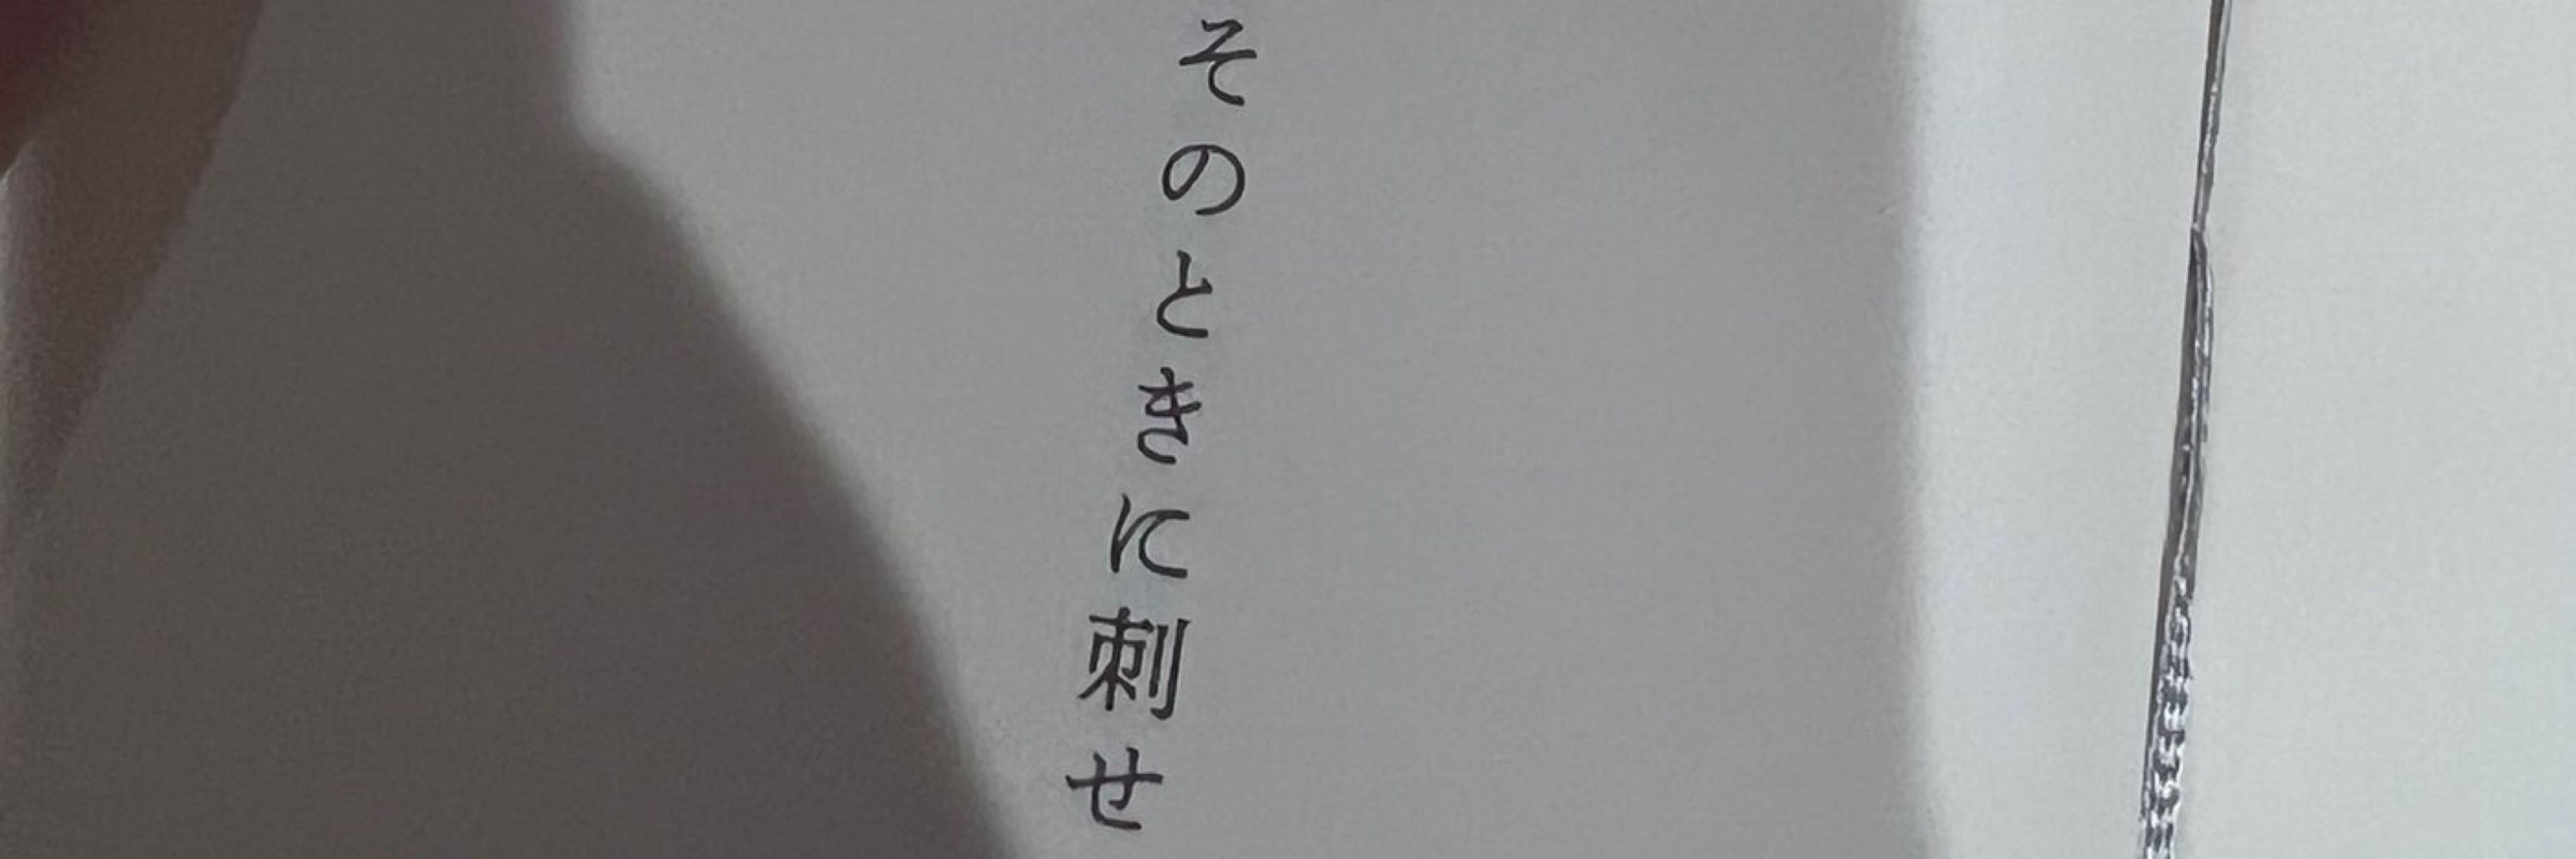 そのときに刺せ